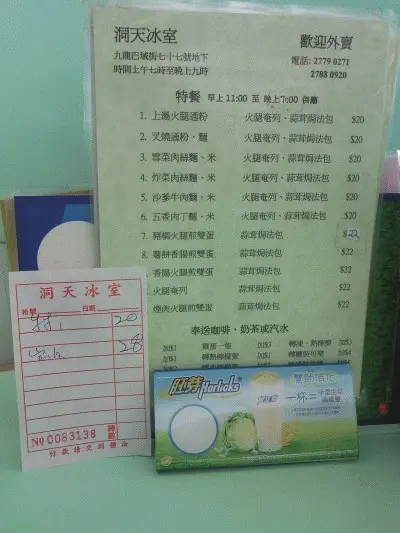 洞天冰室
歡迎外賣
九龍巴域街七十七號地下
電話: 2779 0271
時間上午七時至晚上九時
2788 0920
特餐 早上 11:00 至 晚上7:00 供應
1. 上湯火腿通粉 火腿奄列、蒜茸焗法包 $20
2. 叉燒通粉、麵 火腿奄列、蒜茸焗法包 $20
3. 雪菜肉絲麵、米 火腿奄列、蒜茸焗法包 $20
4. 炸菜肉絲麵、米 火腿奄列、蒜茸焗法包 $20
5. 沙爹牛肉麵、米 火腿奄列、蒜茸焗法包 $20
6. 五香肉丁麵、米 火腿奄列、蒜茸焗法包 $20
7. 豬柳火腿煎雙蛋 蒜茸焗法包 $22
8. 薯餅香腸煎雙蛋 蒜茸焗法包 $22
香腸火腿煎雙蛋 蒜茸焗法包 $22
火腿奄列 蒜茸焗法包 $22
煙肉火腿煎雙蛋 蒜茸焗法包 $22
奉送咖啡、奶茶或汽水
洞天冰室
日期
特 20
28
No 0083138
付款請交到櫃面
胚芽Horlicks
一杯二